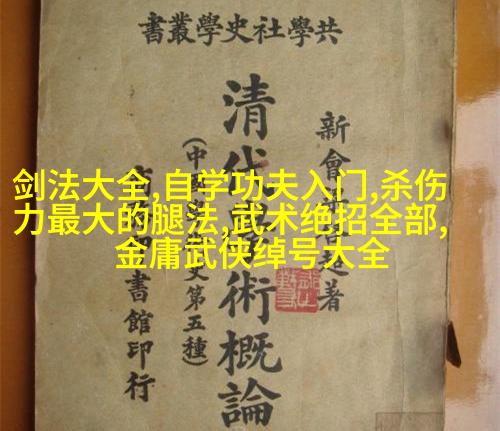 共學社史學叢書
新會著
清代術概論
(中史第五種)
書館印行
剑法大全,自学功夫入门,杀伤
力最大的腿法,武术绝招全部,
金庸武侠绰号大全